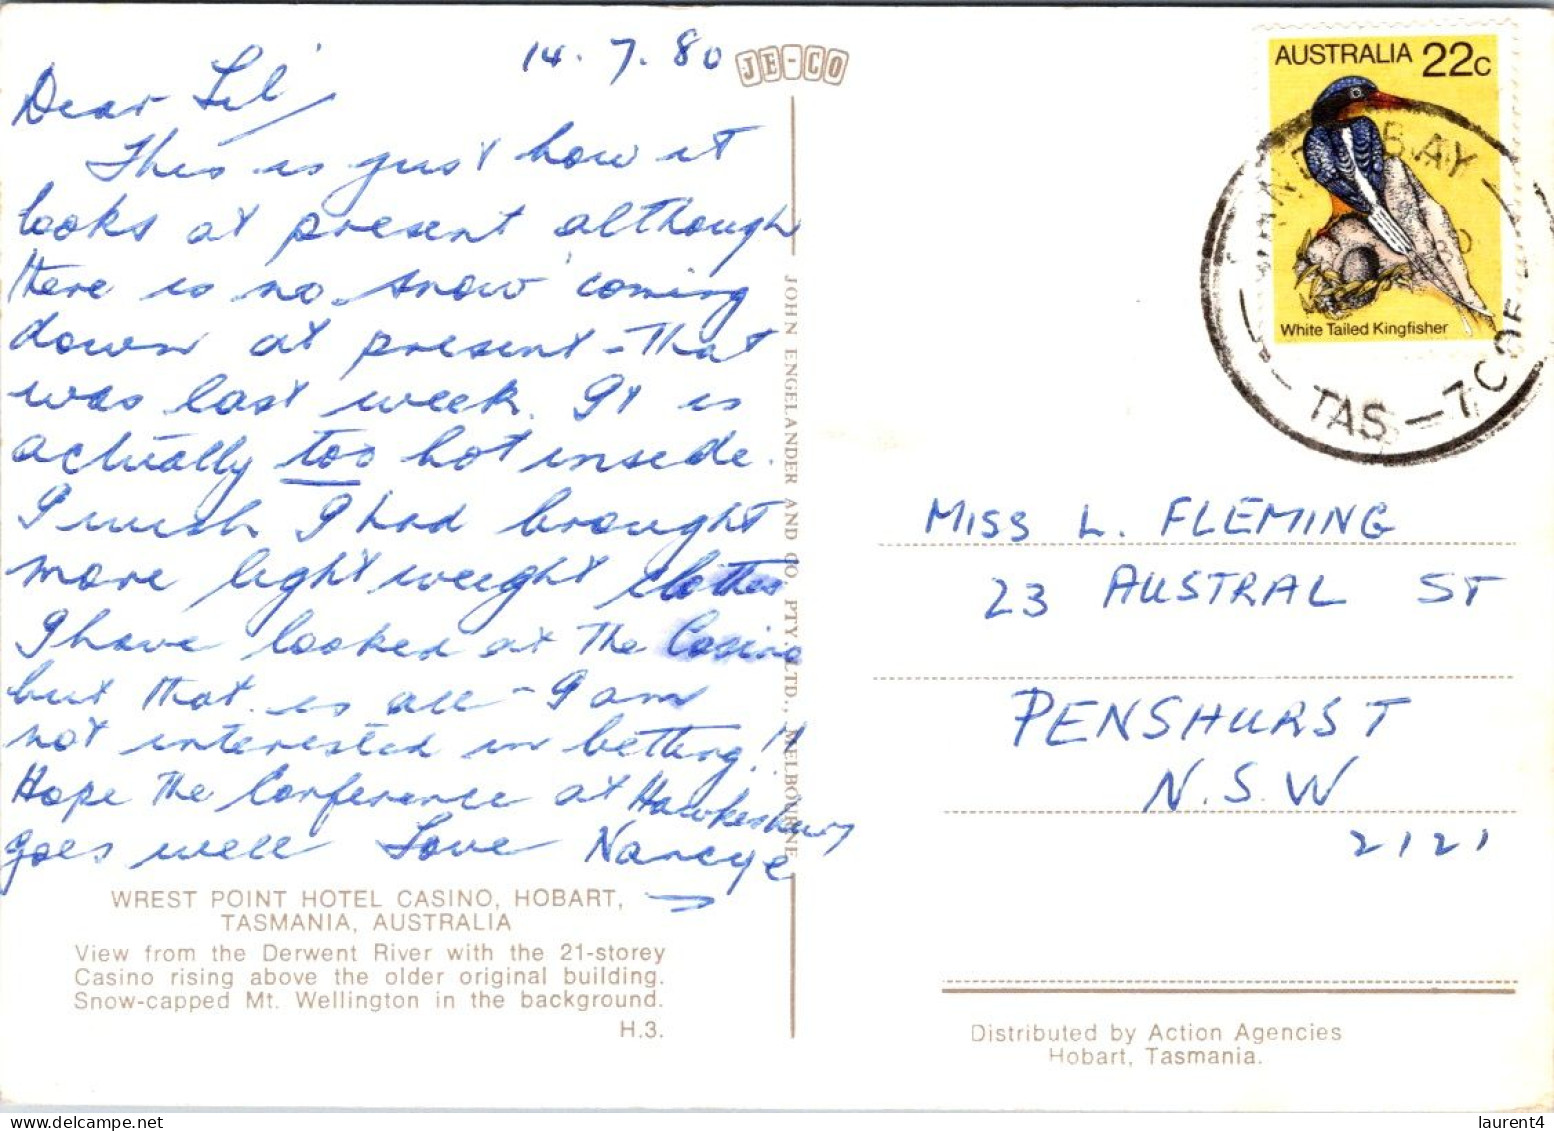 14.7.80
JE-CO
Dear Lil,
This is just how it
looks at present although
there is no snow coming
down at present - that
was last week. It is
actually too hot inside.
I wish I had brought
more light weight clothes
I have looked at the Casino
but that is all - I am
not interested in betting!!
Hope the Conference at Hawkesbury
goes well Love Nancye
WREST POINT HOTEL CASINO, HOBART,
TASMANIA, AUSTRALIA
View from the Derwent River with the 21-storey
Casino rising above the older original building.
Snow-capped Mt. Wellington in the background.
H.3.
JOHN ENGELANDER AND CO. PTY. LTD., MELBOURNE
AUSTRALIA 22c
White Tailed Kingfisher
BAY
80
TAS - 7
MISS L. FLEMING
23 AUSTRAL ST
PENSHURST
N.S.W
2121
Distributed by Action Agencies
Hobart, Tasmania.
laurent4